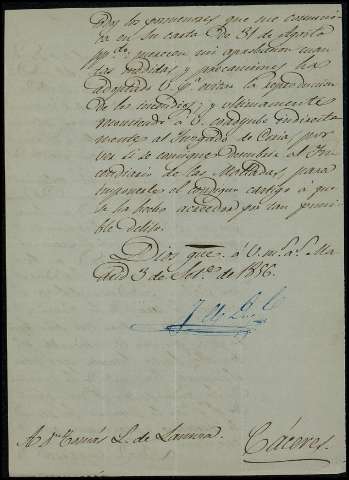 dos los pormenores que me comuni-
ca en su carta de 31 de Agosto
pp.do, merecen mi aprobacion cuan-
tas medidas y precauciones ha
adoptado V. p.a evitar la reproduccion
de los incendios; y ultimamente
recomiendo á V. coadyube indirecta-
mente al Juzgado de Coria, por
ver si se consigue descubrir al In-
cendiario de las Matiadas, para
imponerle el condigno castigo á que
se ha hecho acreedor por tan punni-
ble delito.
Dios gue. á V. m.s a.s Ma-
drid 3 de Set.e de 1856.
A D.n Tomás L. de Lamera.
Cáceres.